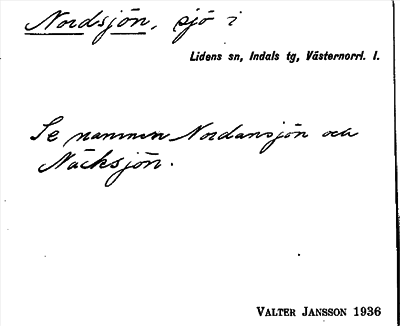 Nordsjön, sjö i
Lidens sn, Indals tg, Västernorrl. l.
Se namnen Nordansjön och
Näcksjön.
VALTER JANSSON 1936